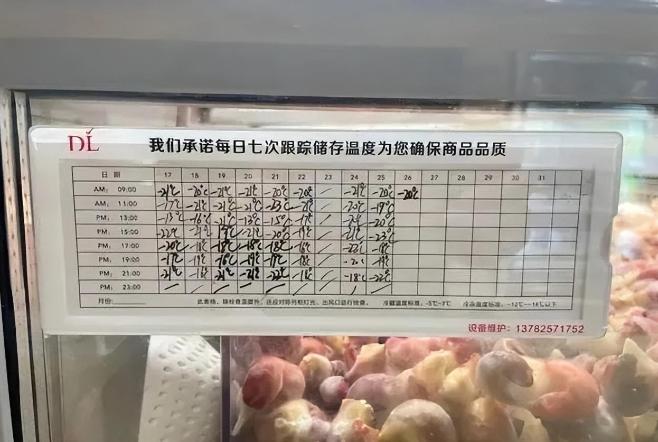 DL
我们承诺每日七次跟踪储存温度为您确保商品品质
日期 17 18 19 20 21 22 23 24 25 26 27 28 29 30 31
AM: 09:00 -21℃ -20℃ -21℃ -21℃ -20℃ -20℃ / -21℃ -20℃ -20℃
AM: 11:00 -17℃ -21℃ -21℃ -21℃ -23℃ -21℃ / -20℃ -19℃
PM: 13:00 -16℃ -21℃ -13℃ -15℃ -17℃ / -20℃
PM: 15:00 -22℃ -21℃ -19℃ -21℃ -20℃ -19℃ / -21℃ -23℃
PM: 17:00 -20℃ -18℃ -18℃ -18℃ -18℃ -16℃ / -22℃ -18℃
PM: 19:00 -17℃ -19℃ -16℃ -19℃ -17℃ -18℃ / -20℃ -19℃
PM: 21:00 -21℃ -16℃ -21℃ -21℃ -22℃ -16℃ / -18℃ -22℃
PM: 23:00 /
月份: 此表格，除检查温度外，还应对陈列柜灯光、出风口进行检查。 冷藏温度标准: -5℃-7℃ 冷冻温度标准: -12℃--18℃以下
设备维护: 13782571752